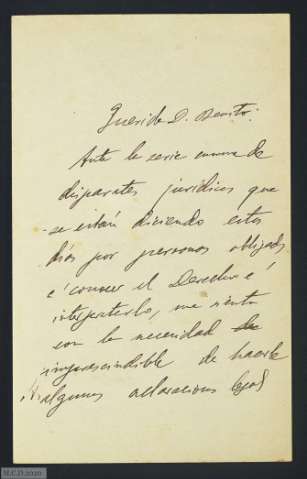 Querido D. Benito:
Ante la serie enorme de
disparates jurídicos que
se están diciendo estos
días por personas obligadas
é conocer el Derecho é
interpretarlo, me siento
con la necesidad de
imprescindible de hacerle
algunas aclaraciones